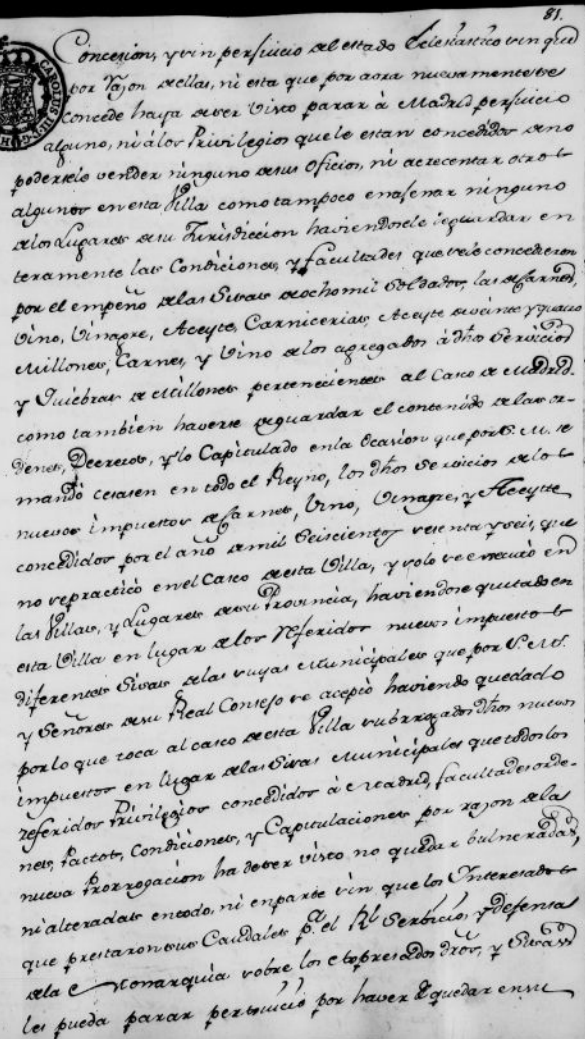 81.
Concesion, y sin perjuicio del estado Eclesiastico sin que
por razon de ellas, ni esta que por aora nuevamente se
concede haya de ser visto parar à Madrid perjuicio
alguno, ni á los Privilegios que le estan concedidos de no
poderse le vender ninguno de sus oficios, ni acrecentar otros
algunos en esta Villa como tampoco enajenar ninguno
de los Lugares de su Jurisdiccion haviendosele de guardar en
teramente las Condiciones, y facultades que se le concedieron
por el empeño de las Sisas de ocho mil Soldados, las de Carnes,
Vino, Vinagre, Aceyte, Carnicerias, Aceyte de veinte y quatro
Millones, Carnes, y Vino de los agregados à dhos Servicios
y Quiebras de Millones pertenecientes al Casco de Madrid.
como tambien haverse de guardar el contenido de las or-
denes, Decretos, y lo Capitulado en la Ocasion que por S. M. se
mandò cesasen en todo el Reyno, los dhos Servicios de los
nuevos impuestos de Carnes, Vino, Vinagre, y Aceyte
concedidos por el año de mil Seiscientos setenta y seis, que
no se practicó en el Casco de esta Villa, y solo se executó en
las Villas, y Lugares de su Provincia, haviendose quitado en
esta Villa en lugar de los referidos nuevos impuestos
diferentes Sisas de las suyas Municipales que por S. M.
y Señores de su Real Consejo se aceptó haviendo quedado
por lo que toca al casco de esta Villa subrrogados dhos nuevos
impuestos en lugar de las Sisas Municipales que todos los
referidos Privilegios concedidos à Madrid, facultades orde-
nes, Pactos, Condiciones, y Capitulaciones por razon de la
nueva Prorrogacion ha de ser visto no quedar bulneradas,
ni alteradas en todo, ni en parte sin que los Interesados
que prestaron sus Caudales pa. el Rl. Serbicio, y defensa
de la Monarquia sobre los expresados dros, y Sisas
les pueda parar perjuicio por haver de quedar en su